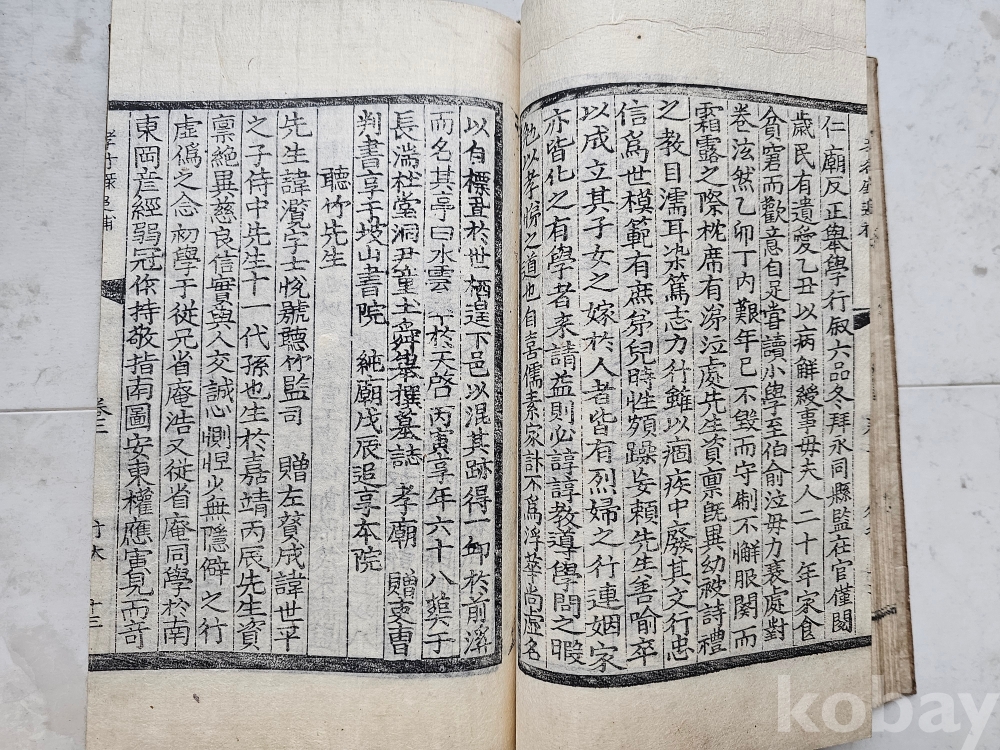 仁廟反正擧學行敍六品冬拜永同縣監在官僅閱
歲民有遺愛乙丑以病解綬事母夫人二十年家食
貧窘而歡意自足嘗讀小學至伯俞泣母力衰處對
卷泫然乙卯丁內艱年已不毀而守制不懈服闋而
霜露之際枕席有涕泣處先生資禀旣異幼被詩禮
之教目濡耳染篤志力行雖以痼疾中廢其文行忠
信爲世模範有庶弟兒時性頗躁妄賴先生善喻卒
以成立其子女之嫁於人者皆有烈婦之行連姻家
亦皆化之有學者来請益則必諄諄教導學問之暇
以孝悌之道也自喜儒素家計不爲浮華尚虛名
以自標置於世栖遑下邑以混其跡得一邱於前溪
而名其亭曰水雲 卒於天啓丙寅享年六十八葬于
長湍杜堂洞尹童土舜擧撰墓誌 孝廟 贈吏曹
判書享于坡山書院 純廟戊辰追享本院
聽竹先生
先生諱灠字士悅號聽竹監司 贈左贊成諱世平
之子侍中先生十一代孫也生於嘉靖丙辰先生資
禀絶異慈良信實與人交誠心惻怛少無隱僻之行
虛僞之念初學于從兄省庵浩又從省庵同學於南
東岡彦經弱冠依持敬指南圖安東權應寅見而許
卷三
十三
kobay